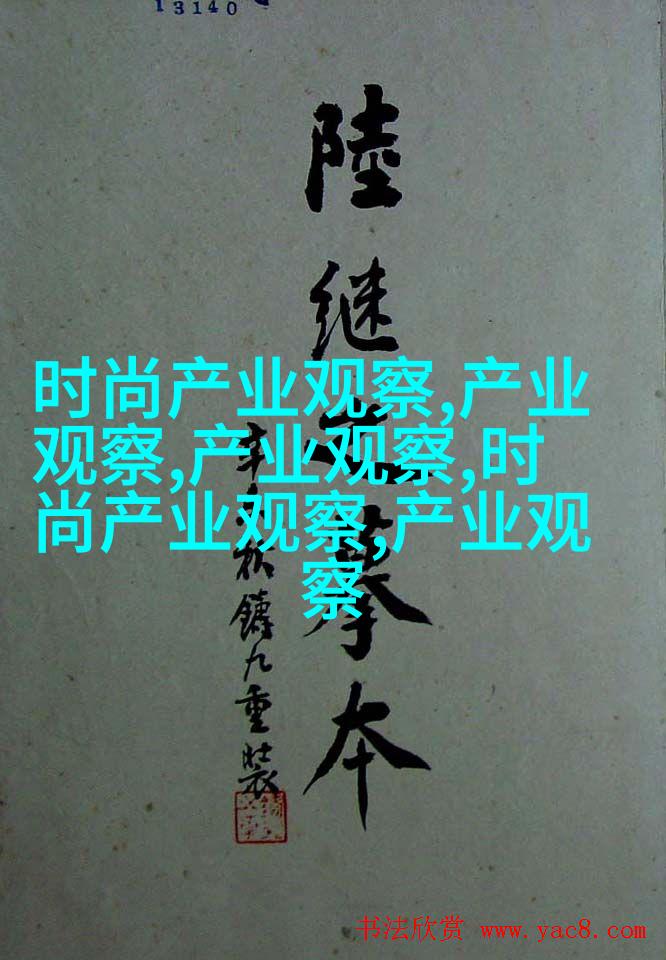 13140
陸继摹本
鑄九重裝
时尚产业观察,产业
观察,产业观察,时
尚产业观察,产业观
察
书法欣赏 www.yac8.com